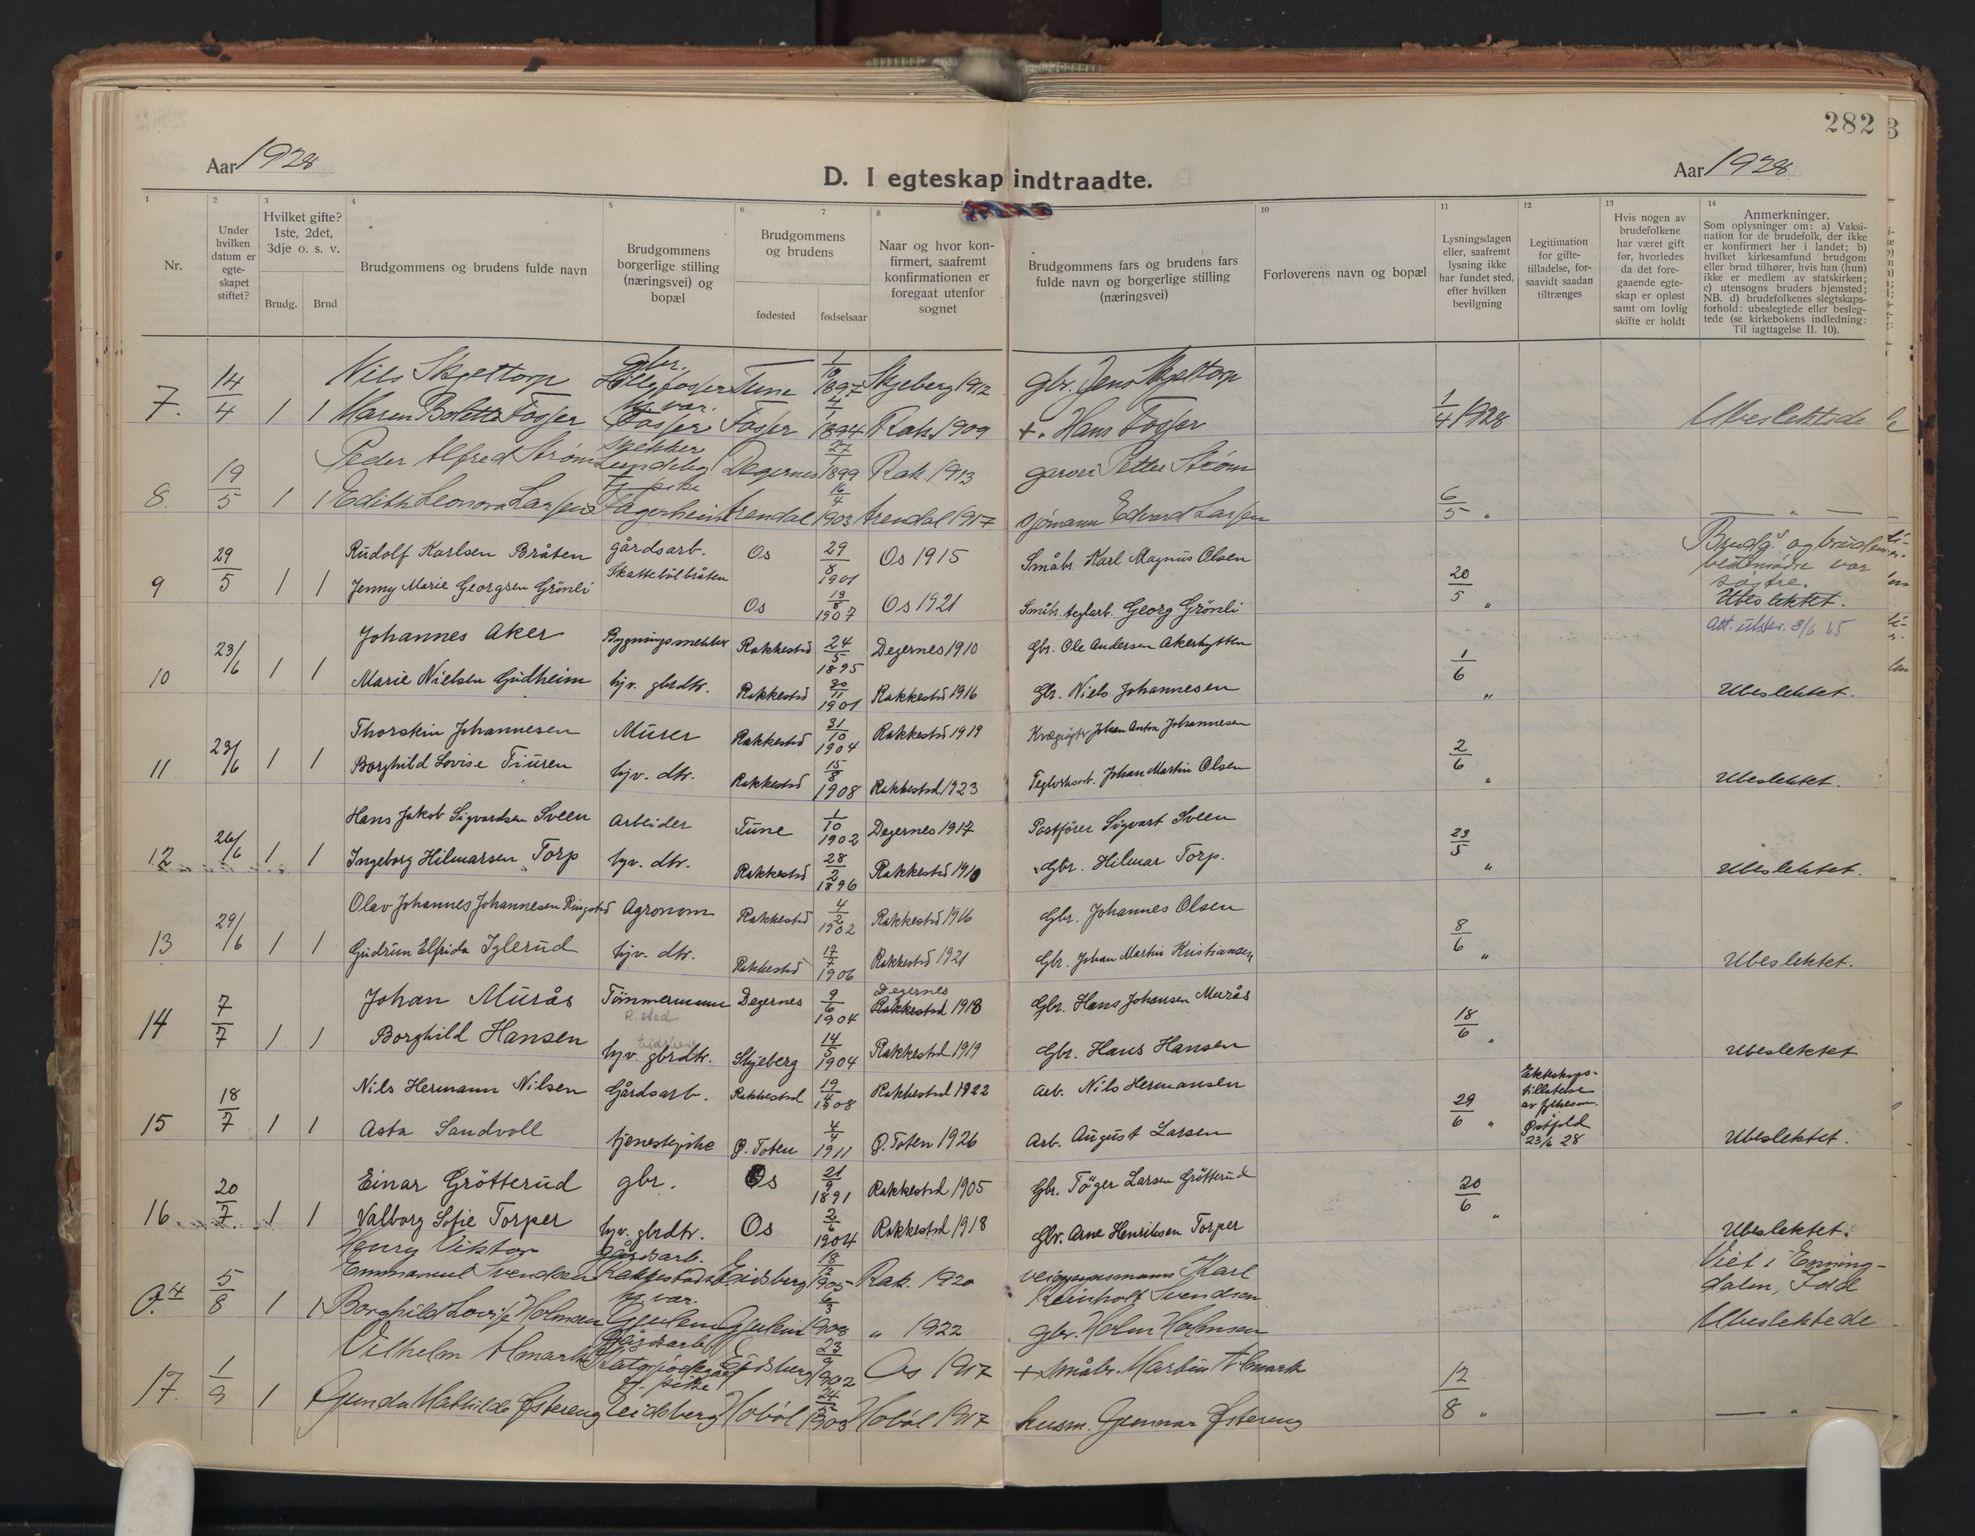 282
3
Aar 1928
D. I egteskap indtraadte.
Aar 1928
1 2 3 4 5 6 7 8 10 11 12 13 14
Nr.
Under hvilken datum er egteskapet stiftet?
Hvilket gifte? 1ste, 2det, 3dje o. s. v.
Brudg. Brud
Brudgommens og brudens fulde navn
Brudgommens borgerlige stilling (næringsvei) og bopæl
Brudgommens og brudens
fødested fødselsaar
Naar og hvor konfirmert, saafremt konfirmationen er foregaat utenfor sognet
Brudgommens fars og brudens fars fulde navn og borgerlige stilling (næringsvei)
Forloverens navn og bopæl
Lysningsdagen eller, saafremt lysning ikke har fundet sted, efter hvilken bevilgning
Legitimation for giftetilladelse, forsaavidt saadan tiltrænges
Hvis nogen av brudefolkene har været gift før, hvorledes da det foregaaende egteskap er opløst samt om lovlig skifte er holdt
Anmerkninger.
Som oplysninger om: a) Vaksination for de brudefolk, der ikke er konfirmert her i landet; b) hvilket kirkesamfund brudgom eller brud tilhører, hvis han (hun) ikke er medlem av statskirken; c) utensogns bruders hjemsted; NB. d) brudefolkenes slegtskapsforhold: ubeslegtede eller beslegtede (se kirkebokens indledning: Til iagttagelse II. 10).
Nils Skjeltorp gbr. Tune 1897 Skjeberg 1912 gbr. Jens Skjeltorp
7. 14/4 1 1 Maren Bolette Fosser hj. var. Fosser Fosser 4/1 1894 Rak. 1909 +. Hans Fosser 1/4 1928 Ubeslektede
Peder Alfred Strøm Degernes 27 1899 Rak. 1913 garver Petter Strøm
8. 19/5 1 1 Edith Leonora Larsen Fagerheim Arendal 16/4 1903 Arendal 1917 sjømann Edvard Larsen 6/5 " — " —
Rudolf Karlsen Bråten gårdsarb. Skattebölbråten Os 29/8 1901 Os 1915 Småbr. Karl Magnus Olsen Brudg. og brudens
9 29/5 1 1 Jenny Marie Georgsen Grönli Os 13/8 1907 Os 1921 Småbr. teglarb. Georg Grönli 20/5 " mødre var søstre. Ubeslektet.
Att. utstr. 8/6. 65
Johannes Aker Rakkestad 24/5 1895 Degernes 1910 Gbr. Ole Andersen Akerhytten
10 23/6 1 1 Marie Nielsen Gudheim hjv. gbrdtr. Rakkestad 30/11 1901 Rakkestad 1916 Gbr. Niels Johannesen 1/6 " Ubeslektet.
Thorstein Johannesen Murer Rakkestad 31/10 1904 Rakkestad 1919 Johan Anton Johannesen
11 23/6 1 1 Borghild Lovise Tiuren hjv. dtr. Rakkestad 15/8 1908 Rakkestad 1923 Teglverksarb. Johan Martin Olsen 2/6 " Ubeslektet.
Hans Jakob Sigvardsen Sveen Arbeider Tune 1/10 1902 Degernes 1917 Postfører Sigvart Sveen
12 26/6 1 1 Ingeborg Hilmarsen Torp hjv. dtr. Rakkestad 28/2 1896 Rakkestad 1910 Gbr. Hilmar Torp. 23/5 " Ubeslektet.
Olav Johannes Johannesen Ringstad Agronom Rakkestad 4/2 1902 Rakkestad 1916 Gbr. Johannes Olsen
13 29/6 1 1 Gudrun Elfrida Iglerud hjv. dtr. Rakkestad 17/7 1906 Rakkestad 1921 Gbr. Johan Martin Kristiansen 8/6 " Ubeslektet.
Johan Murås Tömmermann R.stad Degernes 9/6 1904 Degernes Rakkestad 1918 Gbr. Hans Johansen Murås
14 7/7 1 1 Borghild Hansen Eidsberg hjv. gbrdtr. Skjeberg 14/5 1904 Rakkestad 1919 Gbr. Hans Hansen 18/6 " Ubeslektet
Nils Hermann Nilsen Gårdsarb. Rakkestad 19/4 1908 Rakkestad 1922 Arb. Nils Hermansen
15 18/7 1 1 Asta Sandvoll tjenestepike Ø. Toten 4/4 1911 Ø. Toten 1926 Arb. August Larsen 29/6 " Ekteskapstillatelse av fylkesm. Østfold 23/6 28 Ubeslektet.
Einar Gröttерud gbr. Os 21/9 1891 Rakkestad 1905 Gbr. Töger Larsen Gröttерud
16 20/7 1 1 Valborg Sofie Torper hjv. gbrdtr. Os 2/6 1904 Rakkestad 1918 Gbr. Arne Henriksen Torper 20/6 " Ubeslektet.
Henry Viktor Emmanuel Svendsen gårdsarb. Eidsberg 18 1905 Rak. 1920 Karl Reinholt Svendsen Viet i Enningdalen, Idd
5/8 1 1 Borghild Lovise Holmsen hj. var. 6/3 1908 " 1922 gbr. Holm Holmsen Ubeslektede
Vilhelm Almark gårdsarb. Eidsberg 23/9 1902 Os 1917 + Småbr. Martin Almark
17. 1/9 1 1 Gunda Mathilde Østereng tj. pike Eidsberg Hobøl 24 1903 Hobøl 1917 husm. Gunnar Østereng 12/8 " — " —